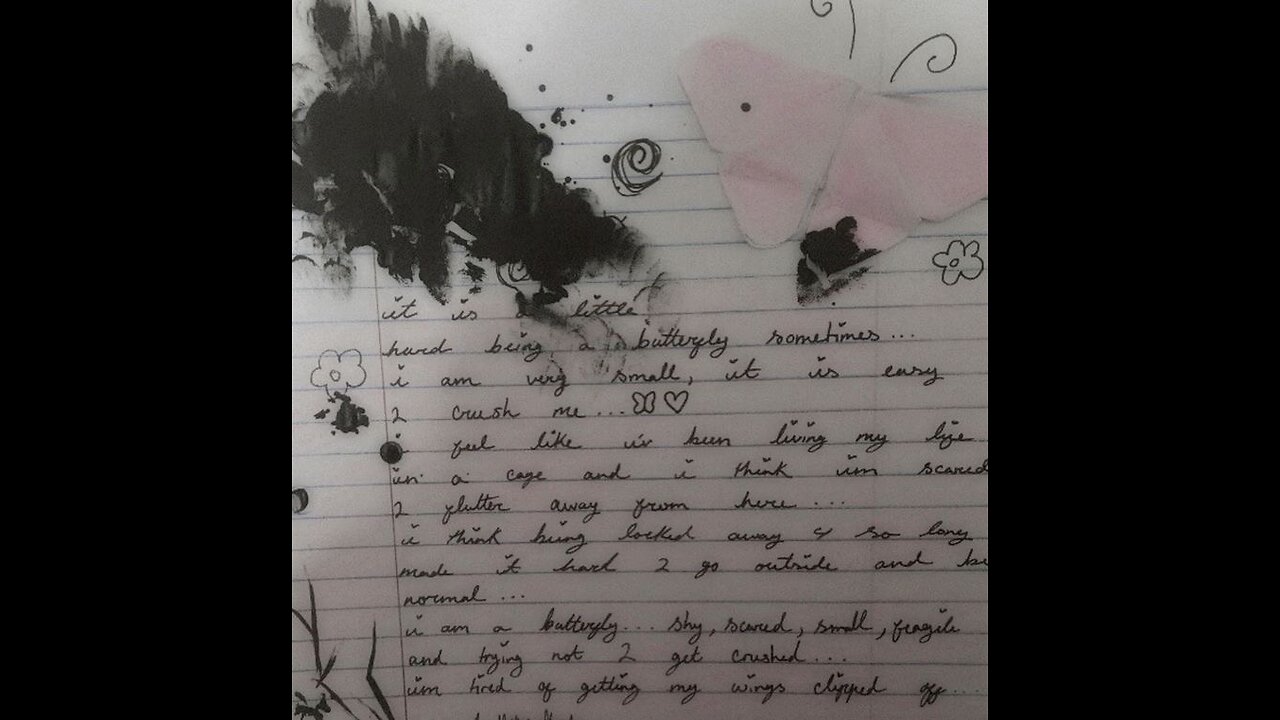 it is a little
hard being a butterfly sometimes...
i am very small, it is easy
2 crush me...
i feel like iv been living my life
in a cage and i think im scared
2 flutter away from here...
i think being locked away 4 so long
made it hard 2 go outside and be
normal...
i am a butterfly... shy, scared, small, fragile
and trying not 2 get crushed...
im tired of getting my wings clipped off...